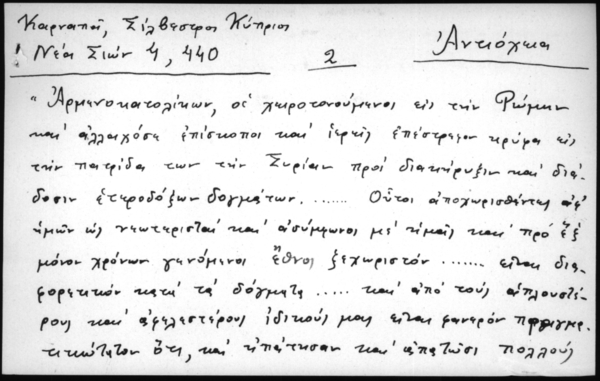 Καρναπᾶ, Σίλβεστρος Κύπριος
Νέα Σιών 4, 440
2
Ἀντιόχεια
"Ἀρμενοκατολίκων, οἱ χειροτονούμενοι εἰς τὴν Ρώμην
καὶ ἀλλαχόσε ἐπίσκοποι καὶ ἱερεῖς ἐπέστρεφον κρύφα εἰς
τὴν πατρίδα των τὴν Συρίαν πρὸς διακήρυξιν καὶ διά-
δοσιν ἑτεροδόξων δογμάτων. ...... Οὗτοι ἀποχωρισθέντες ἀφ'
ἡμῶν ὡς νεωτερισταὶ καὶ ἀσύμφωνοι μὲ ἡμᾶς καὶ πρὸ ἓξ
μόνον χρόνων γενόμενοι ἔθνος ξεχωριστόν ....... εἶναι δια-
φορετικὸν κατὰ τὰ δόγματα ..... καὶ ἀπὸ τοὺς ἁπλουστέ-
ρους καὶ ἀφελεστέρους ἰδικούς μας εἶναι φανερὸν πραγμα-
τικώτατον ὅτι, καὶ ἠπάτησαν καὶ ἀπατῶσι πολλοὺς